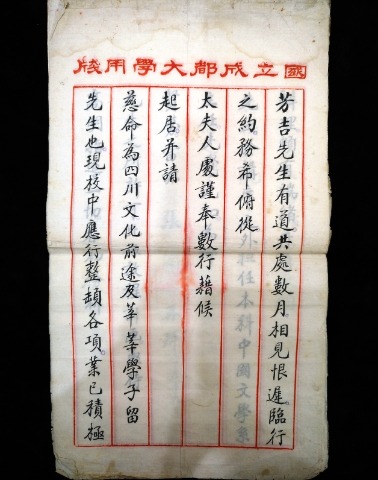 國立成都大學用牋
芳吉先生有道共處數月相見恨遲臨行
之約務希俯從
太夫人處謹奉數行藉候
起居并請
慈命為四川文化前途及莘莘學子留
先生也現校中應行整頓各項業已積極